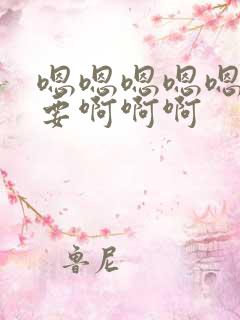 嗯嗯嗯嗯嗯
要啊啊啊
鲁尼